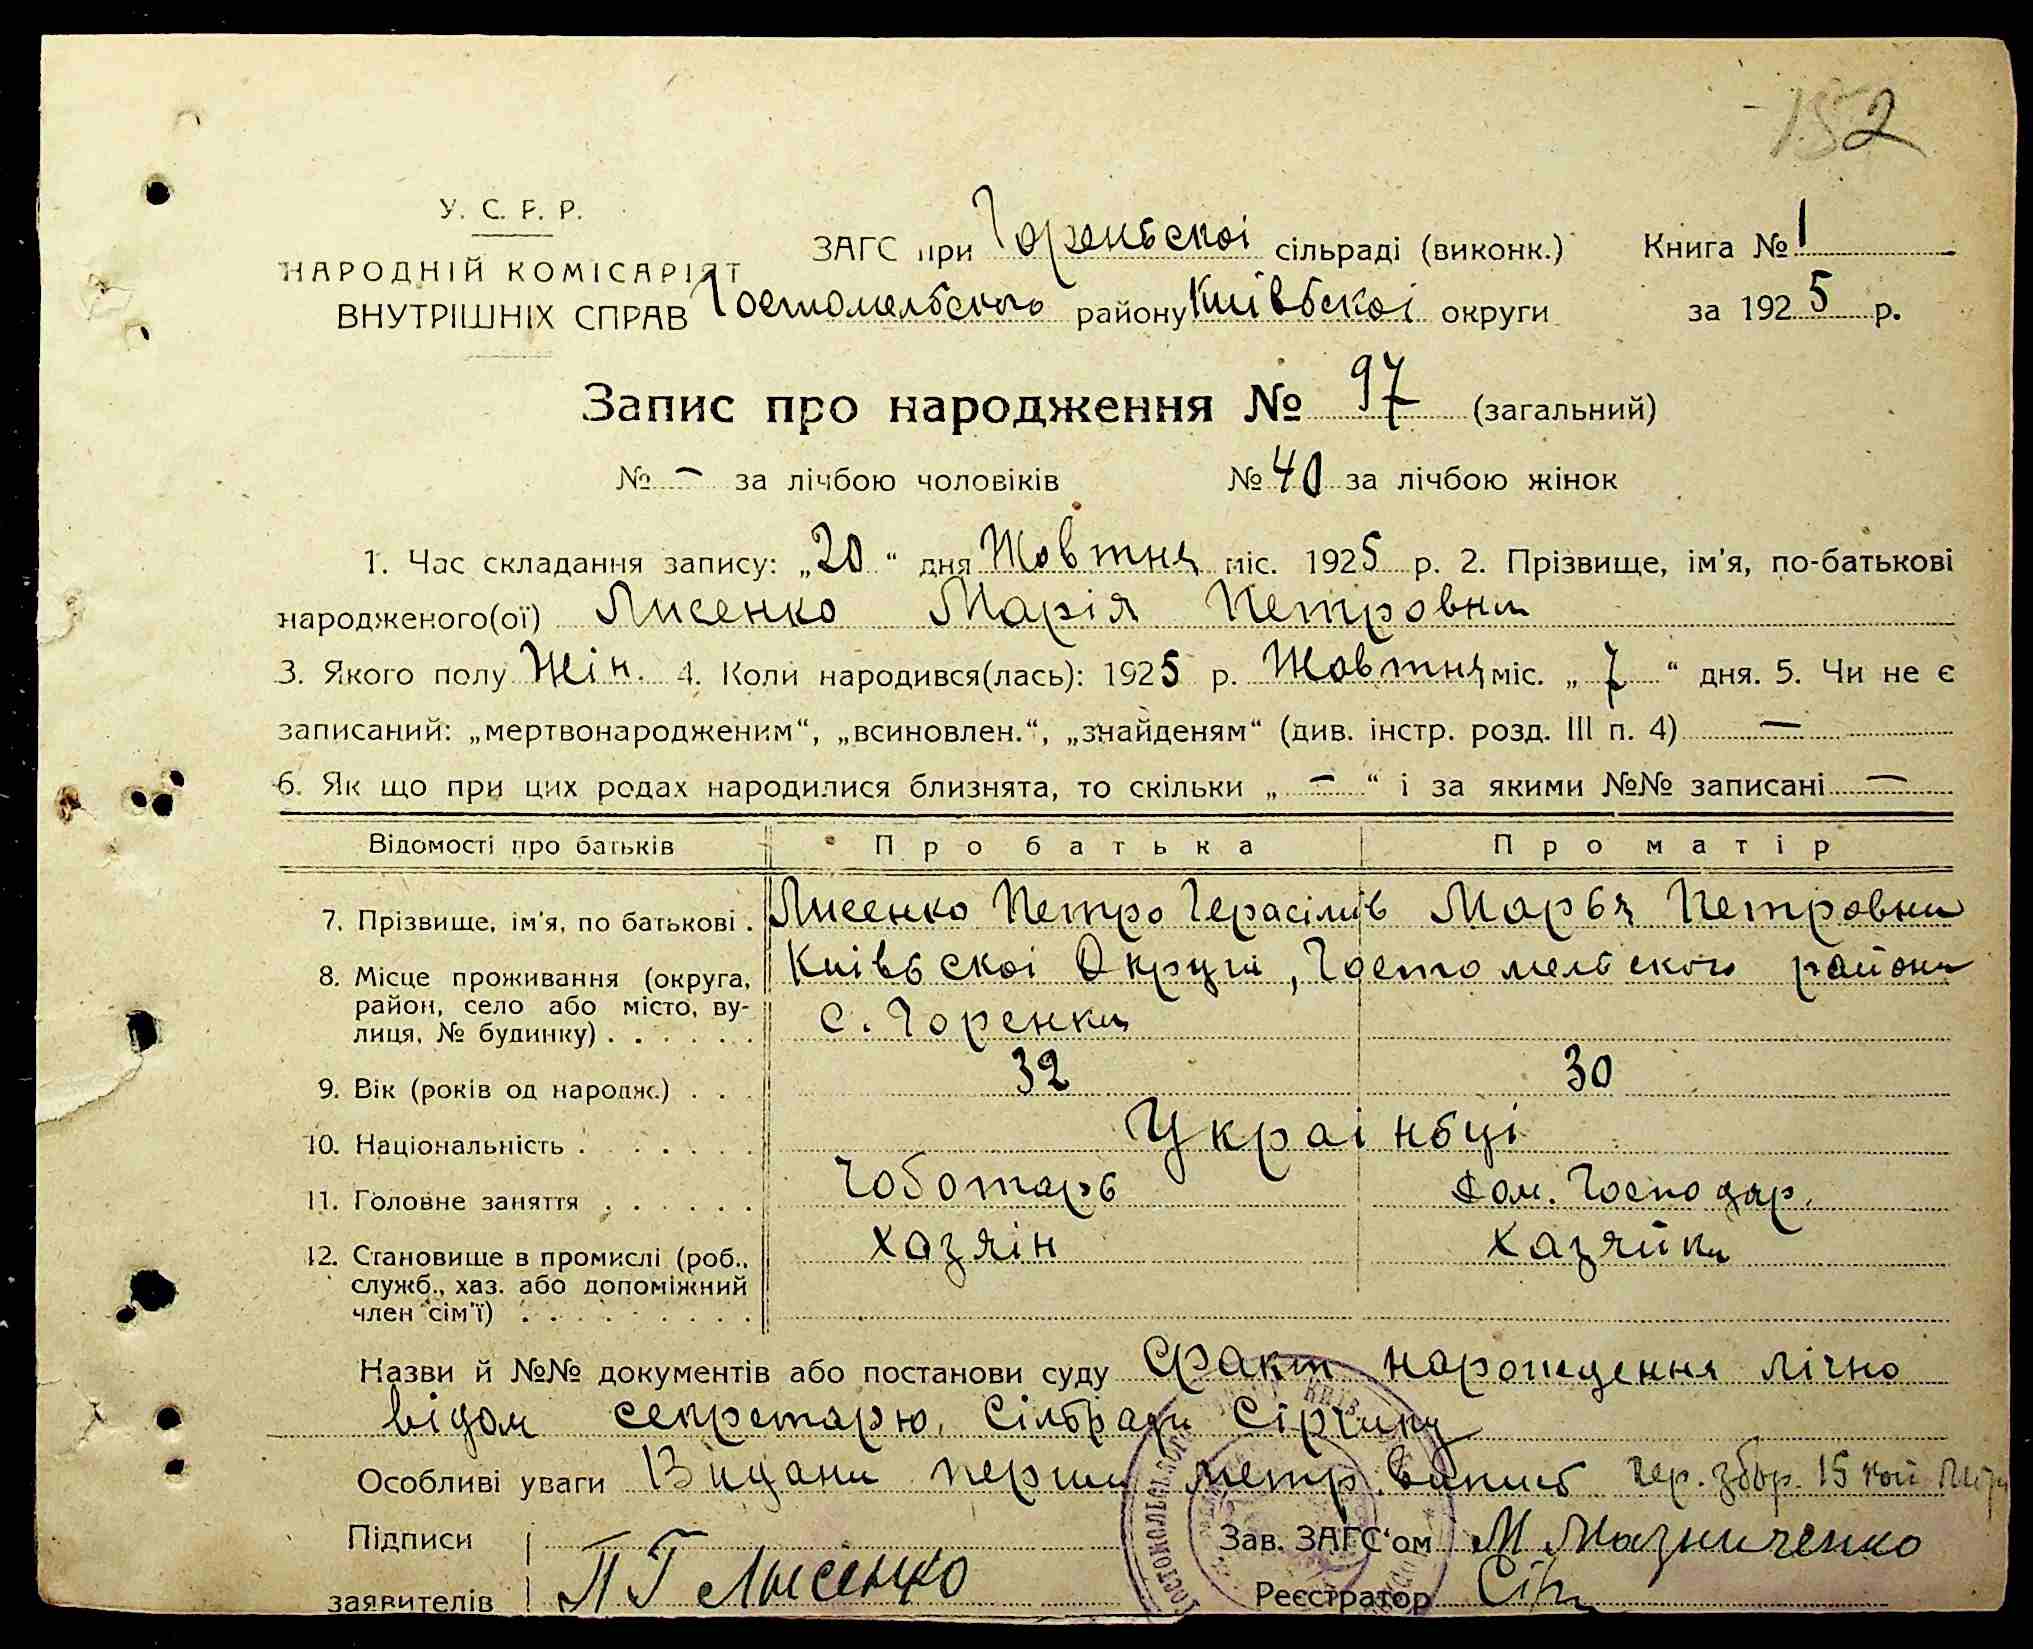 152
У. С. Р. Р.
НАРОДНІЙ КОМІСАРІЯТ
ВНУТРІШНІХ СПРАВ
ЗАГС при Горенської сільраді (виконк.) Книга № 1
Гостомельського району Київської округи за 1925 р.
Запис про народження № 97 (загальний)
№ – за лічбою чоловіків № 40 за лічбою жінок
1. Час складання запису: „20“ дня Жовтня міс. 1925 р. 2. Прізвище, ім'я, по-батькові
народженого(ої) Лисенко Марія Петровна
3. Якого полу Жін. 4. Коли народився(лась): 1925 р. Жовтня міс. „7“ дня. 5. Чи не є
записаний: „мертвонародженим“, „всиновлен.“, „знайденям“ (див. інстр. розд. III п. 4) –
6. Як що при цих родах народилися близнята, то скільки „–“ і за якими №№ записані –
Відомості про батьків Про батька Про матір
7. Прізвище, ім'я, по батькові . Лисенко Петро Герасімів Марья Петровна
8. Місце проживання (округа, район, село або місто, вулиця, № будинку) . . . . . . Киівьскоі Округи, Гостомельского района
с. Горенка
9. Вік (років од народж.) . . . 32 30
10. Національність . . . . . . . Украіньці
11. Головне заняття . . . . . . Чоботарь Дом. Господар.
12. Становище в промислі (роб., служб., хаз. або допоміжний член сім'ї) . . . . . . . . Хазяін Хазяйка
Назви й №№ документів або постанови суду Факт народження лічно
відом секретарю Сільради Сірчику
Особливі уваги Видана перша метр. випись
Підписи
заявителів П Г Лысенко
Зав. ЗАГС'ом М Мазниченко
Реєстратор Сір